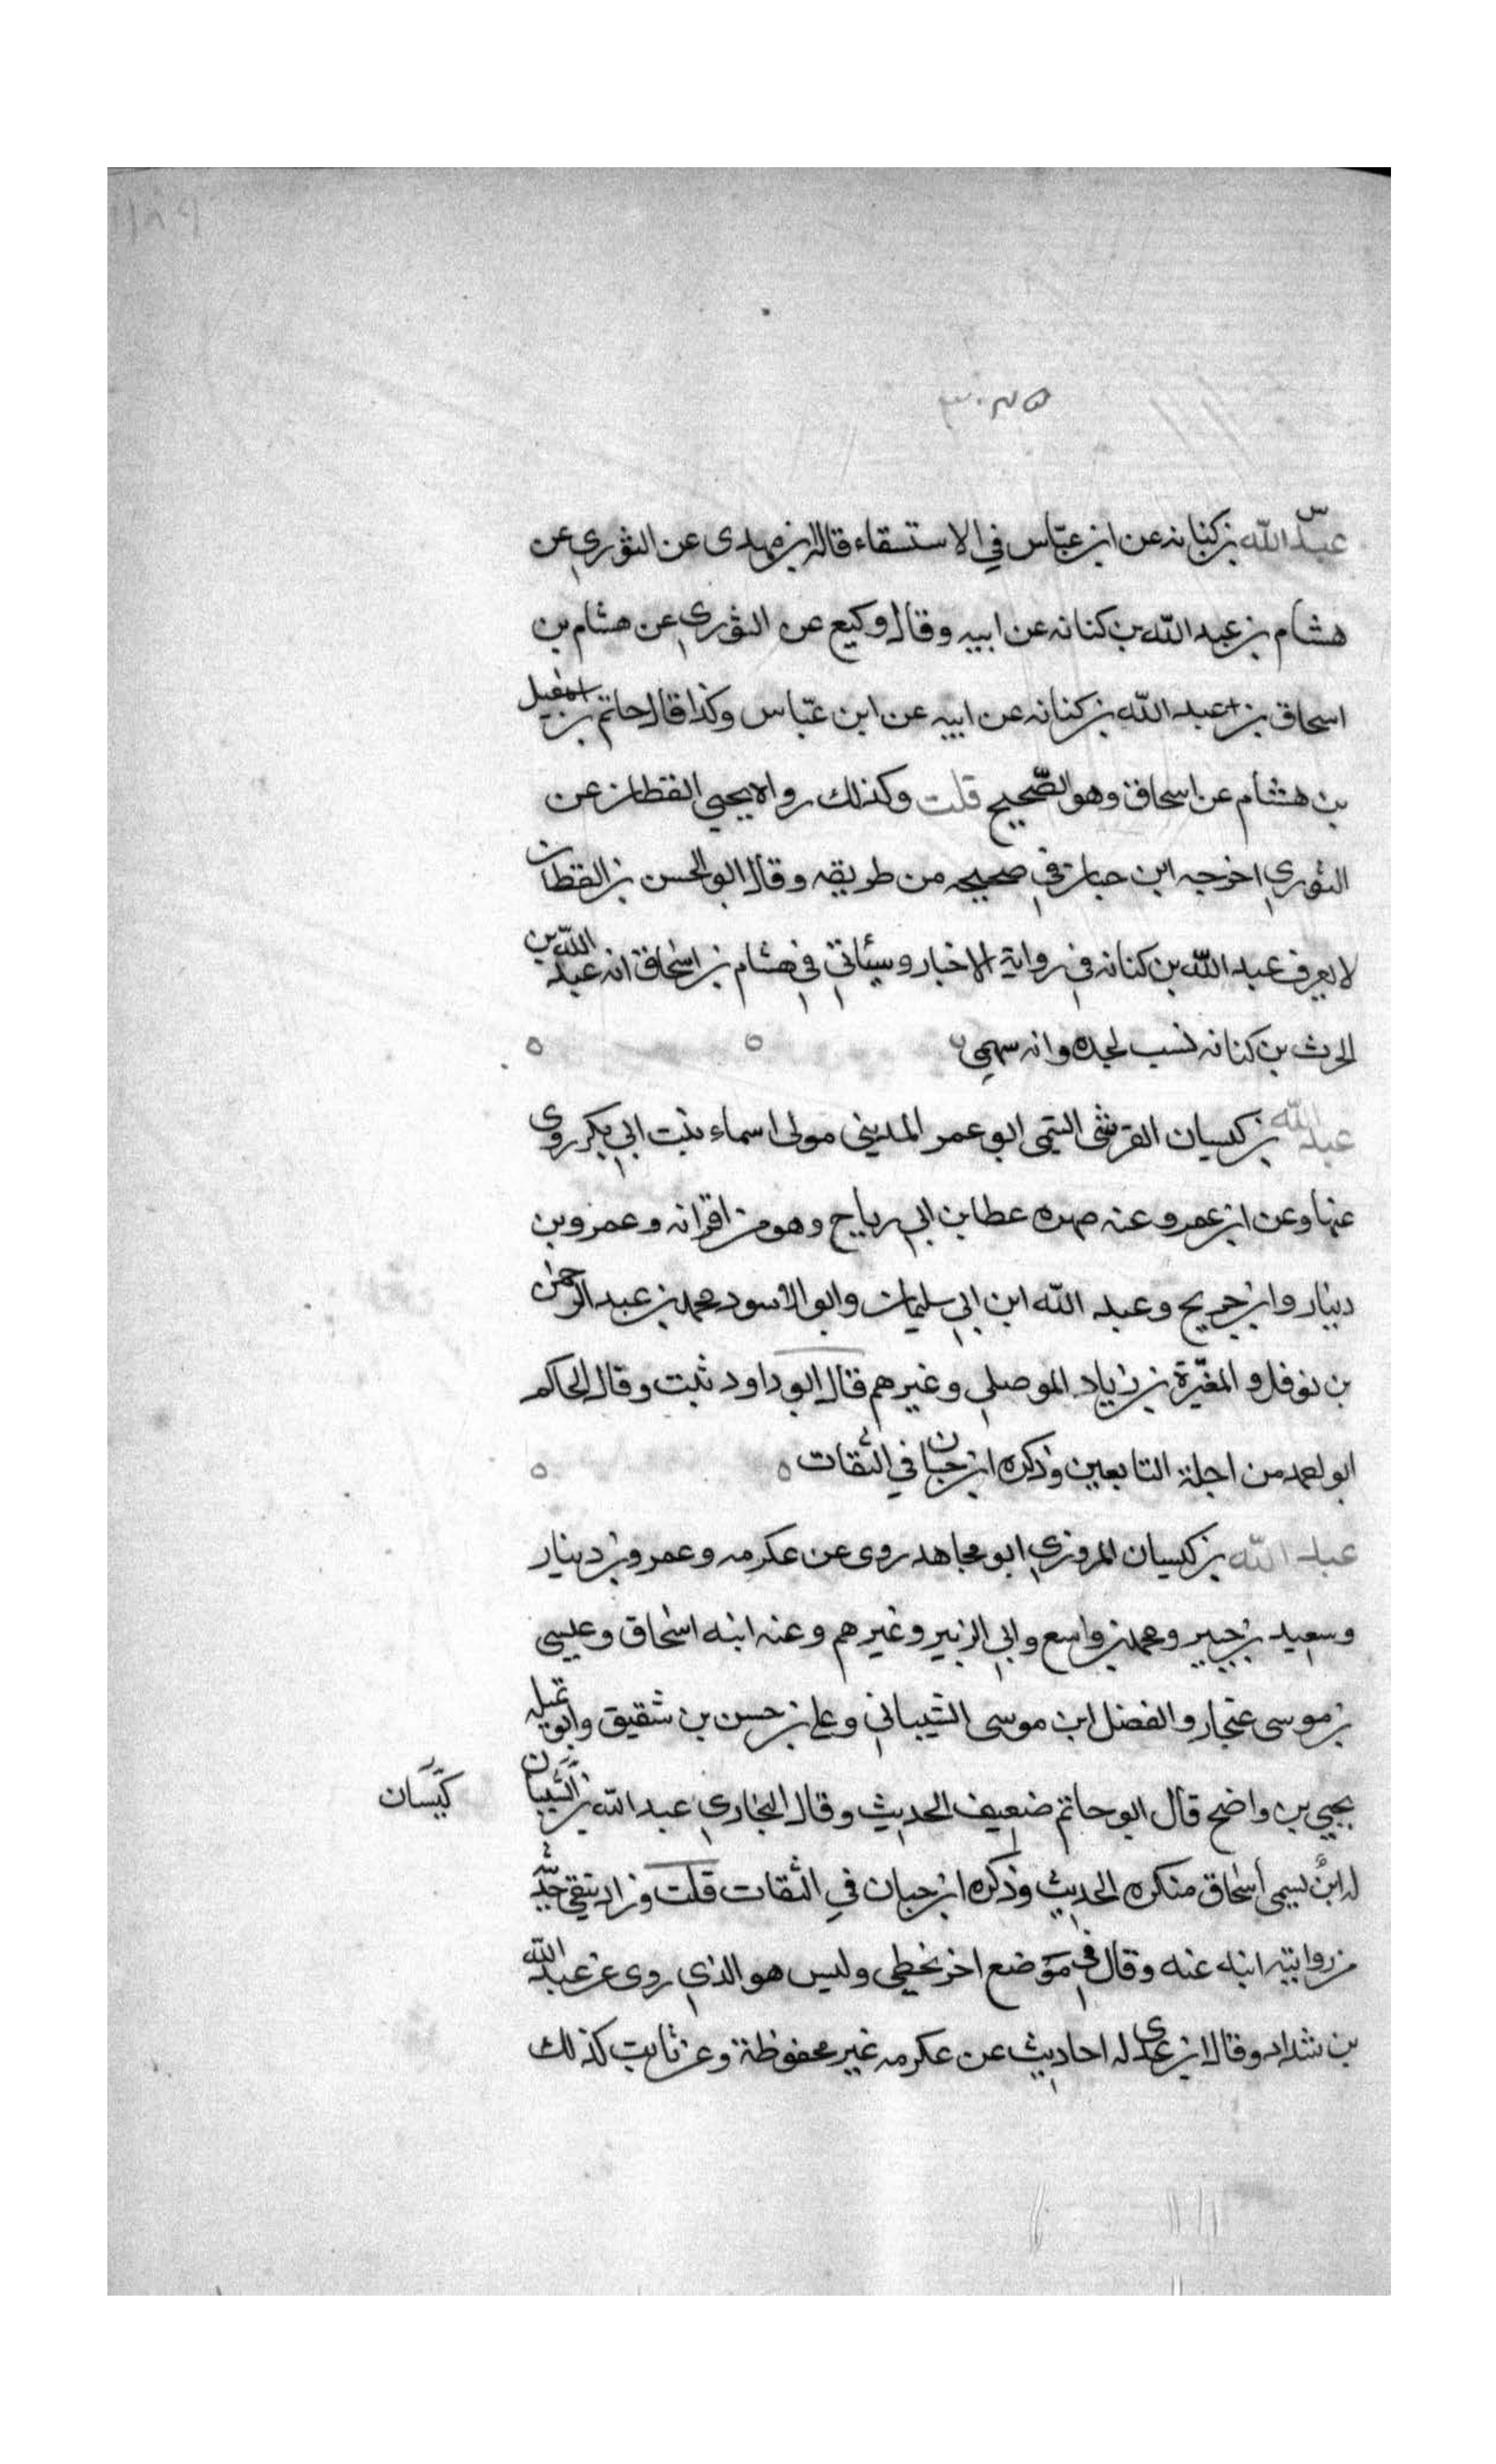 س
عبد الله بن كنانه عن ابن عبّاس في الاستسقاء قاله ابن مهدى عن الثوري عن
هشام بن عبد الله بن كنانه عن ابيه وقال وكيع عن الثوري عن هشام بن
اسحاق بن عبد الله بن كنانه عن ابيه عن ابن عبّاس وكذا قال حاتم بن اسمعيل
بن هشام عن اسحاق وهو الصّحيح قلت وكذلك رواه يحيي القطان عن
الثوري اخرجه ابن حبان في صحيحه من طريقه وقال ابو الحسن بن القطان
لا يعرف عبد الله بن كنانه في رواية الاخبار وسيأتي في هشام بن اسحاق انه عبد الله بن
الحرث بن كنانه نسب لجده وانه سهمي
عبد الله بن كيسان القرشي التيمي ابو عمر المديني مولى اسماء بنت ابي بكر روى
عنها وعن ابن عمر وعنه صهره عطا بن ابي رباح وهو من اقرانه وعمرو بن
دينار وابن جريج وعبد الله ابن ابي سليمان وابو الاسود محمد بن عبد الرحمن
بن نوفل والمغيرة بن زياد الموصلي وغيرهم قال ابو داود ثبت وقال الحاكم
ابو احمد من اجلة التابعين وذكره ابن حبان في الثقات
عبد الله بن كيسان المروزي ابو مجاهد روى عن عكرمه وعمرو بن دينار
وسعيد بن جبير ومحمد بن واسع وابي الزبير وغيرهم وعنه ابنه اسحاق وعيسى
بن موسى غنجار والفضل ابن موسى الشيباني وعلي بن حسن بن شقيق وابو تميله
يحيي بن واضح قال ابو حاتم ضعيف الحديث وقال البخاري عبد الله بن
كيسان
له ابنٌ يسمى اسحاق منكره الحديث وذكره ابن حبان في الثقات قلت وزاد يتقي
من رواية ابنه عنه وقال في موضع اخر يخطي وليس هو الذي روى عن عبد الله
بن شداد وقال ابن عدى له احاديث عن عكرمه غير محفوظة وعن ثابت كذلك